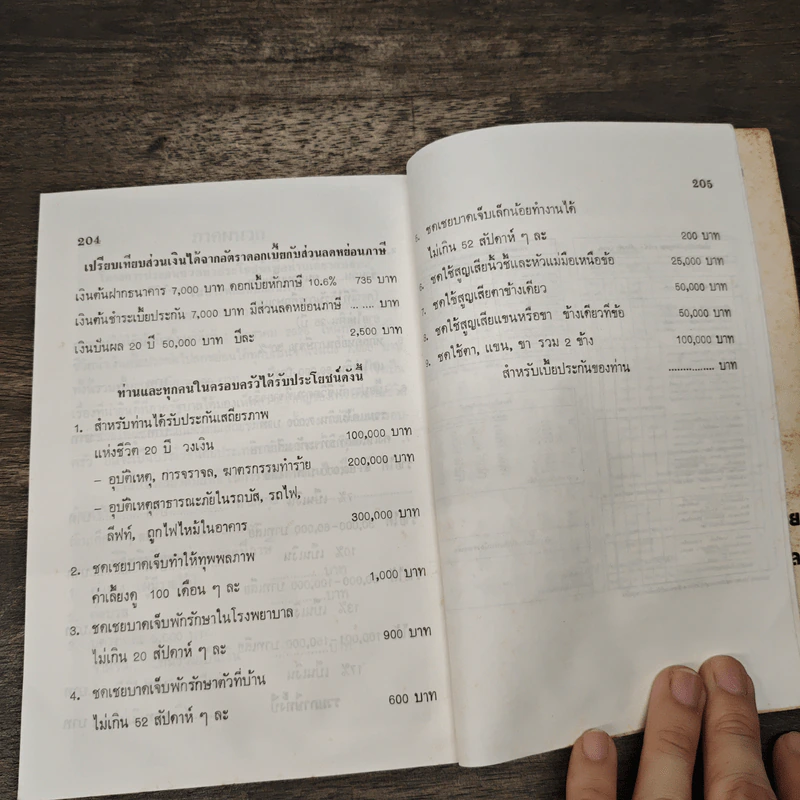 204
เปรียบเทียบส่วนเงินได้จากอัตราดอกเบี้ยกับส่วนลดหย่อนภาษี
เงินต้นฝากธนาคาร 7,000 บาท ดอกเบี้ยหักภาษี 10.6% 735 บาท
เงินต้นชำระเบี้ยประกัน 7,000 บาท มีส่วนลดหย่อนภาษี ........ บาท
เงินปันผล 20 ปี 50,000 บาท ปีละ 2,500 บาท
ท่านและทุกคนในครอบครัวได้รับประโยชน์ดังนี้
1. สำหรับท่านได้รับประกันเสถียรภาพ
แห่งชีวิต 20 ปี วงเงิน 100,000 บาท
– อุบัติเหตุ, การจราจล, ฆาตกรรมทำร้าย 200,000 บาท
– อุบัติเหตุสาธารณะภัยในรถบัส, รถไฟ,
ลีฟท์, ถูกไฟไหม้ในอาคาร 300,000 บาท
2. ชดเชยบาดเจ็บทำให้ทุพพลภาพ
ค่าเลี้ยงดู 100 เดือน ๆ ละ 1,000 บาท
3. ชดเชยบาดเจ็บพักรักษาในโรงพยาบาล
ไม่เกิน 20 สัปดาห์ ๆ ละ 900 บาท
4. ชดเชยบาดเจ็บพักรักษาตัวที่บ้าน
ไม่เกิน 52 สัปดาห์ ๆ ละ 600 บาท
205
ชดเชยบาดเจ็บเล็กน้อยทำงานได้
ไม่เกิน 52 สัปดาห์ ๆ ละ 200 บาท
6. ชดใช้สูญเสียนิ้วชี้และหัวแม่มือเหนือข้อ 25,000 บาท
7. ชดใช้สูญเสียตาข้างเดียว 50,000 บาท
8. ชดใช้สูญเสียแขนหรือขา ข้างเดียวที่ข้อ 50,000 บาท
9. ชดใช้ตา, แขน, ขา รวม 2 ข้าง 100,000 บาท
สำหรับเบี้ยประกันของท่าน ................ บาท